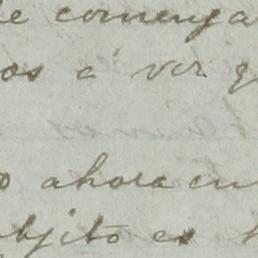 de comenza
os á ver q
o ahora en
bjito es